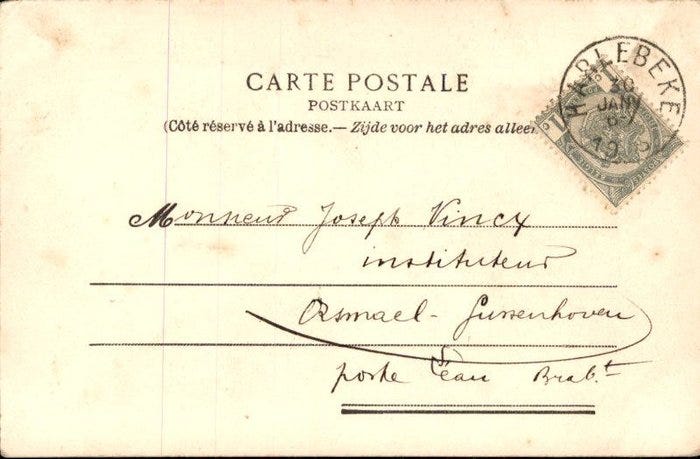 CARTE POSTALE
POSTKAART
(Côté réservé à l'adresse.— Zijde voor het adres alleen
HARLEBEKE
JANV
Monsieur Joseph Vincx
instituteur
Orsmael - Gussenhoven
poste Léau Brabt